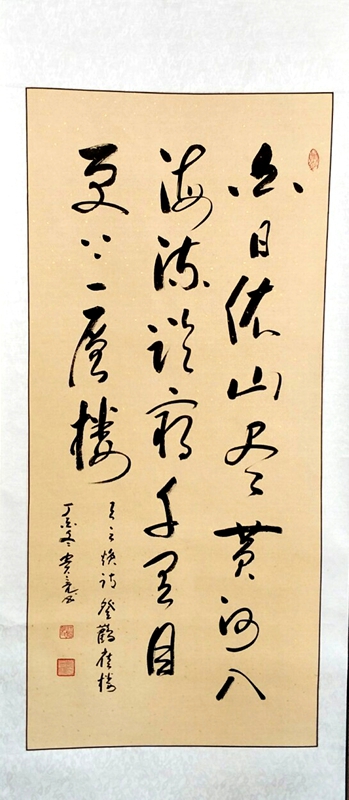 白日依山尽黄河入
海流欲穷千里目
更上一层楼
王之焕诗登鹳雀楼
丁酉冬